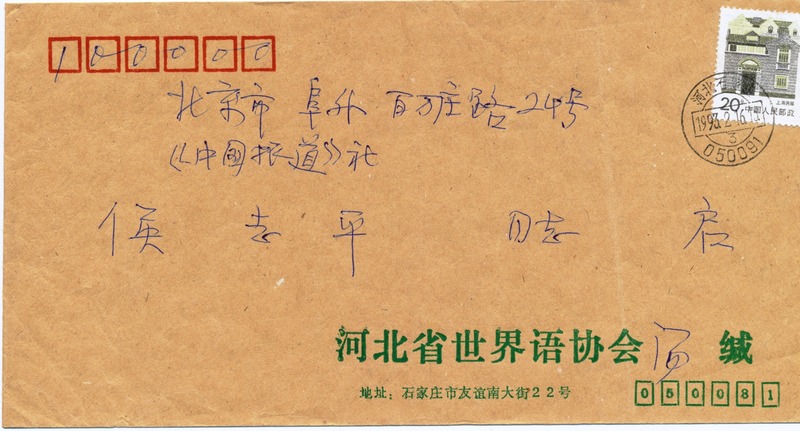 100000
北京市 阜外 百万庄路24号
《中國报道》社
侯 志 平 同志 启
20 上海民居
中国人民邮政
河北
1993.2.16
3
050091
河北省世界语协会 汤 缄
地址：石家庄市友谊南大街22号
050081